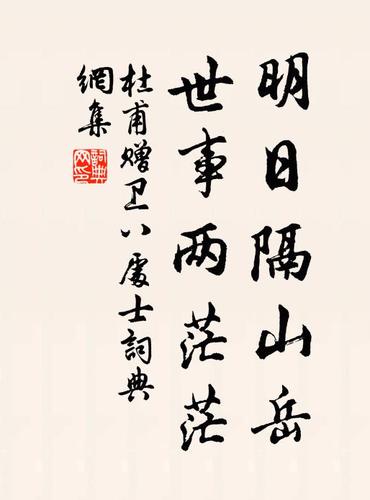 明日隔山岳
世事两茫茫
杜甫赠卫八處士詞典
網集
詞典網印